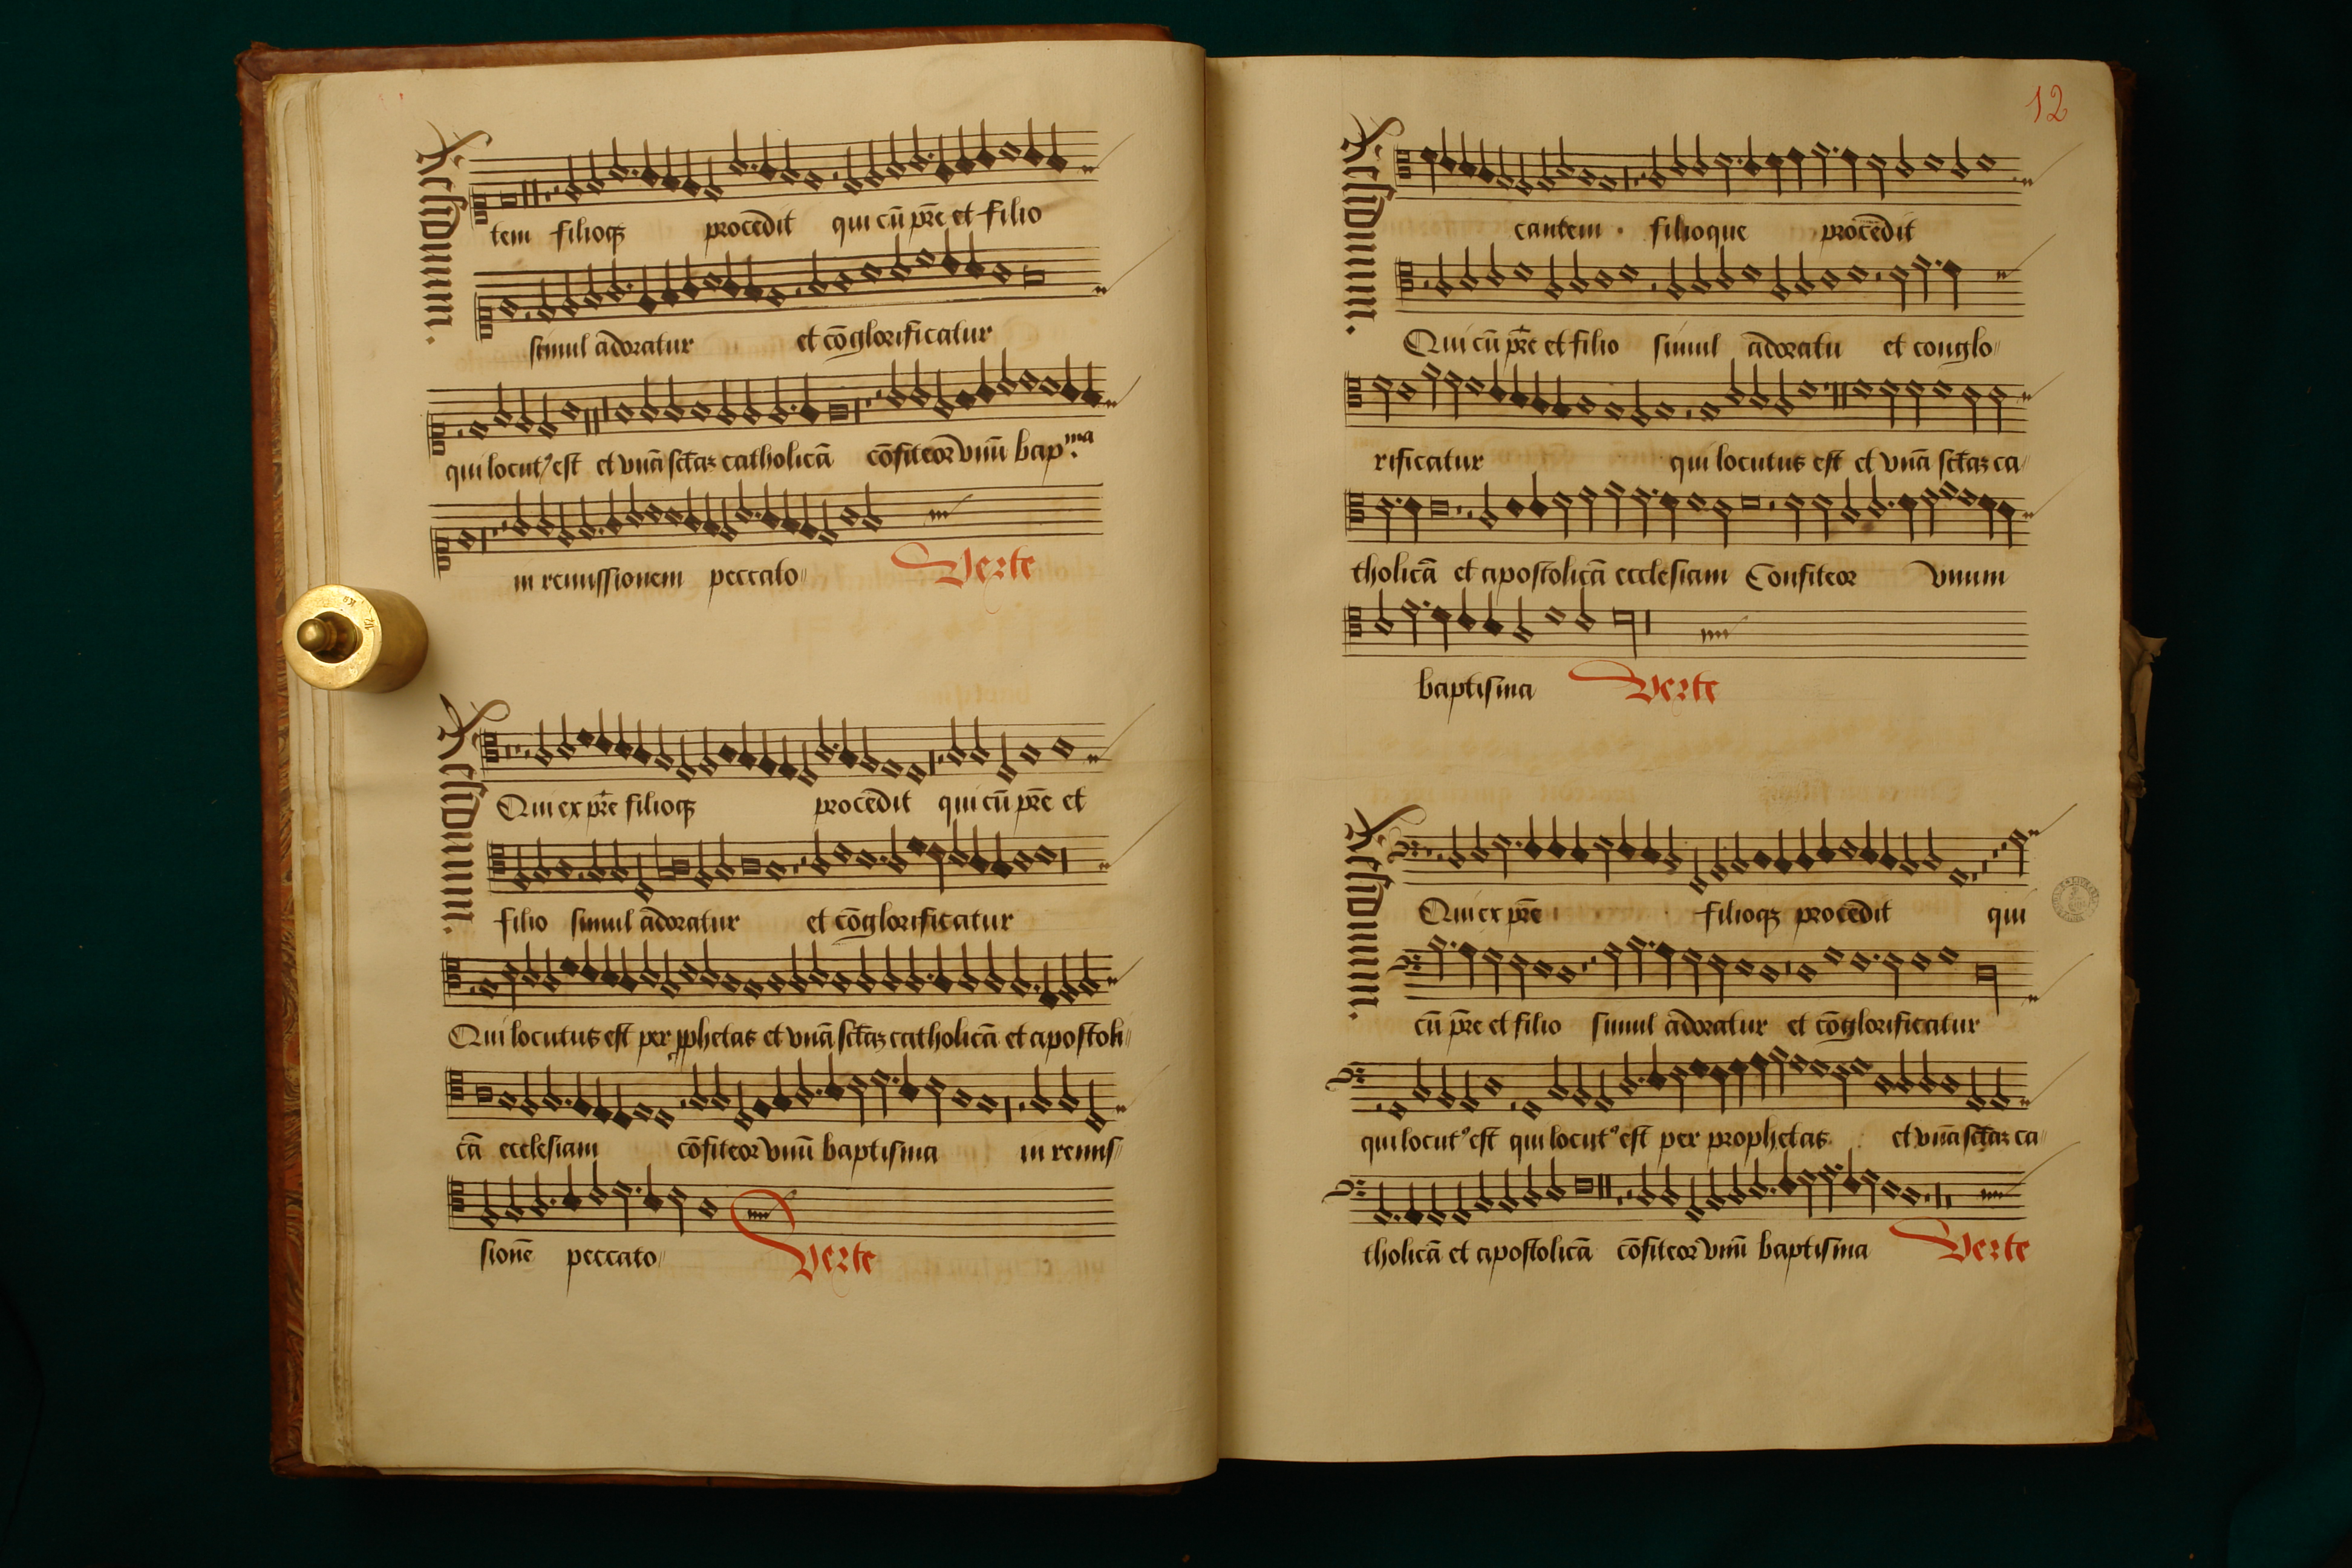 Residuum.
tem filioqꝫ procēdit qui cū pr̄e et filio
simul adoratur et cōglorificatur
qui locutꝰ est et vnā sctāꝫ catholicā cōfiteor vnū bapᵐᵃ
in remissionem peccato〃
Verte
Residuum.
Qui ex pr̄e filioqꝫ procēdit qui cū pr̄e et
filio simul adoratur et cōglorificatur
Qui locutus est per ꝓphetas et vnā sctāꝫ catholicā et apostoli〃
cā ecclesiam cōfiteor vnū baptisma in remis〃
sionē peccato〃
Verte
12
Residuum.
cantem filioque procēdit
Qui cū pr̄e et filio simul adoratu et conglo〃
rificatur qui locutus est et vnā sctāꝫ ca〃
tholicā et apostolicā ecclesiam Confiteor vnum
baptisma
Verte
Residuum.
Qui ex pr̄e filioqꝫ procēdit qui
cū pr̄e et filio simul adoratur et cōglorificatur
qui locutꝰ est qui locutꝰ est per prophetas et vnā sctāꝫ ca〃
tholicā et apostolicā cōfiteor vnū baptisma
Verte